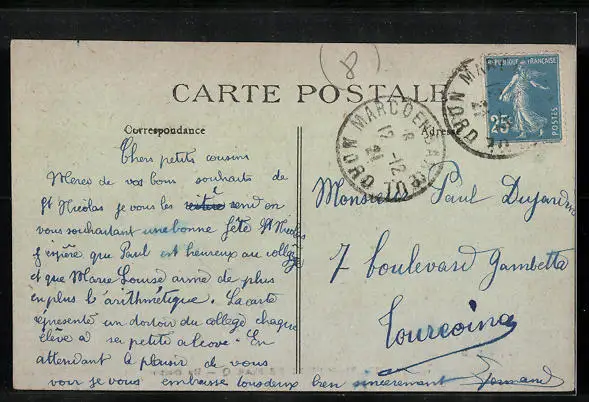 8
CARTE POSTALE
Correspondance
Adresse
RÉPUBLIQUE FRANÇAISE
25c
POSTES
MARCQ EN BARŒUL
NORD
12
24
Chers petits cousins
Merci de vos bons souhaits de
St Nicolas je vous les rend en
vous souhaitant une bonne fête St Nicolas
j'espère que Paul est heureux au collège
et que Marie Louise aime de plus
en plus l'arithmétique. La carte
représente un dortoir du collège chaque
élève a sa petite alcôve. En
attendant le plaisir de vous
voir je vous embrasse tous deux bien sincèrement
Monsieur Paul Dujardin
7 boulevard Gambetta
Tourcoing